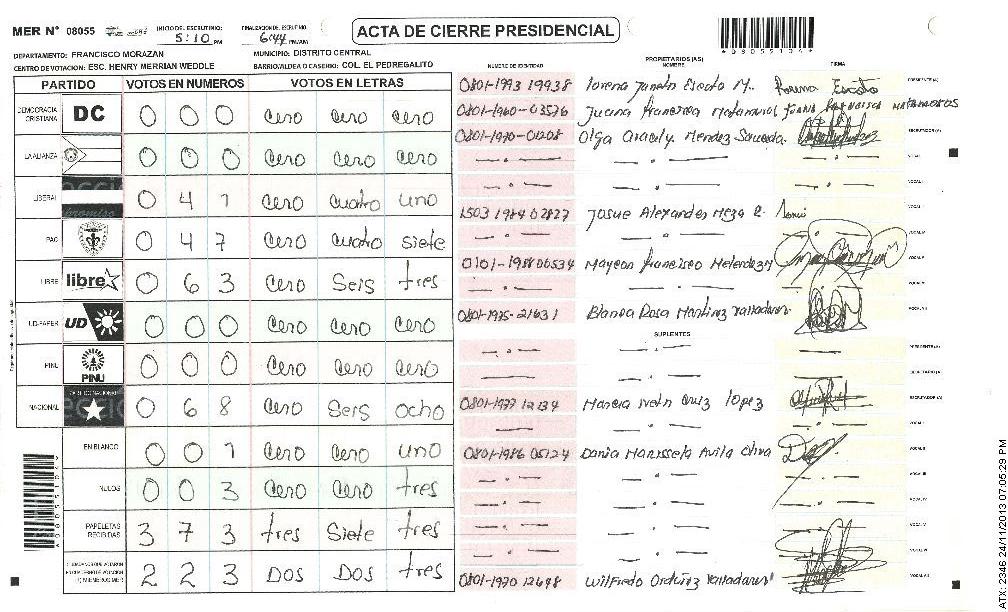 MER N° 08055 INICIO DE ESCRUTINIO: 5:10 PM FINALIZACION DE ESCRUTINIO: 6:44 PM/AM ACTA DE CIERRE PRESIDENCIAL
*080551041*
DEPARTAMENTO: FRANCISCO MORAZAN MUNICIPIO: DISTRITO CENTRAL
CENTRO DE VOTACION: ESC. HENRY MERRIAN WEDDLE BARRIO/ALDEA O CASERIO: COL. EL PEDREGALITO
PARTIDO VOTOS EN NUMEROS VOTOS EN LETRAS
DEMOCRACIA CRISTIANA DC 0 0 0 Cero Cero Cero
LA ALIANZA 0 0 0 Cero Cero Cero
LIBERAL 0 4 1 Cero Cuatro uno
PAC 0 4 7 Cero Cuatro siete
LIBRE libre 0 6 3 Cero Seis tres
UD-FAPER UD 0 0 0 Cero Cero Cero
PINU PINU 0 0 0 Cero Cero Cero
NACIONAL 0 6 8 Cero Seis ocho
EN BLANCO 0 0 1 Cero Cero uno
NULOS 0 0 3 Cero Cero tres
PAPELETAS RECIBIDAS 3 7 3 tres Siete tres
2 2 3 DOS DOS tres
NUMERO DE IDENTIDAD PROPIETARIOS (AS) NOMBRE FIRMA
0801-1993 19938 Lorena Janeth Escoto M. Lorena Escoto PRESIDENTE(A)
0801-1960-03576 Juana Francisca Matamoros
0801-1970-01208 Olga Aracely Mendez Sauceda ESCRUTADOR(A)
1503 1984 02827 Josue Alexander Meza R.
0101-1958 00534 Francisco
0801-1975-21631 Blanca Rosa Martinez Valladares
SUPLENTES
PRESIDENTE(A)
SECRETARIO(A)
0801-1977 12134 Marcia Iveth Cruz Lopez ESCRUTADOR(A)
0801-1986 05124 Dania Marissela Avila Oliva
0801-1970 12698 Wilfredo Ordoñez Valladares
ATX-2346 24/11/2013 07:05:29 PM